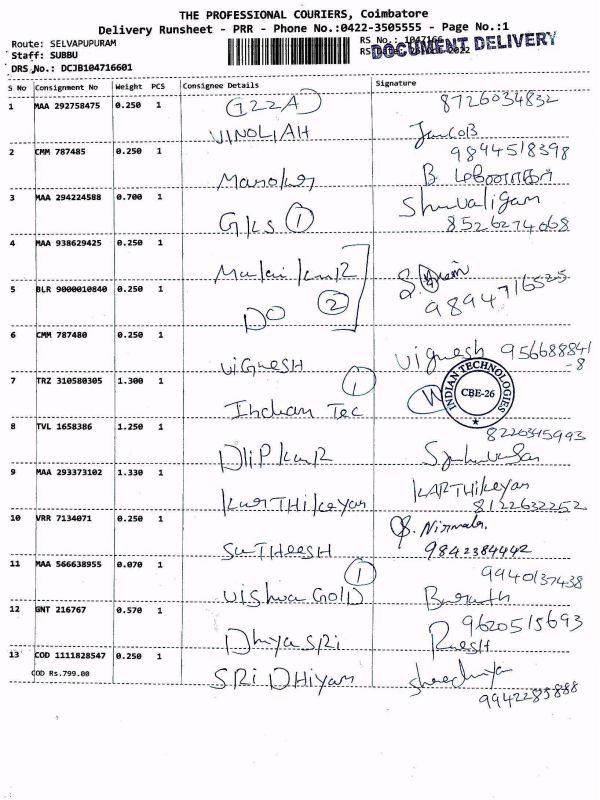 THE PROFESSIONAL COURIERS, Coimbatore
Delivery Runsheet - PRR - Phone No.:0422-3505555 - Page No.:1
Route: SELVAPUPURAM
RS No.: 1047166
DOCUMENT DELIVERY
Staff: SUBBU
DRS No.: DCJB104716601
S No Consignment No Weight PCS Consignee Details Signature
1 MAA 292758475 0.250 1 G22A 8726034832
VINOLIAH JacoB
2 CMM 787485 0.250 1 9894518398
Manoker B.
3 MAA 294224588 0.700 1 Shivaligam
GKS 1 8526274668
4 MAA 938629425 0.250 1
Malaikar
5 BLR 9000010840 0.250 1 9894716525
DO 2
6 CMM 787480 0.250 1 Vignesh 956688841
ViGNESH -8
7 TRZ 310580305 1.300 1 1 INDIAN TECHNOLOGIES
Indian Tec CBE-26
8 TVL 1658386 1.250 1 8220345993
DliPkar
9 MAA 293373102 1.330 1 KARTHikeyan
KarTHikeyan 8122632252
10 VRR 7134071 0.250 1 S. Nirmala
SaTHeesH 9842384442
11 MAA 566638955 0.070 1 1 9940137438
Vishwa GolD Barath
12 GNT 216767 0.570 1 9620515693
DhiyaSRi
13 COD 1111828547 0.250 1
COD Rs.799.00 SRi DHiyan 9942285888